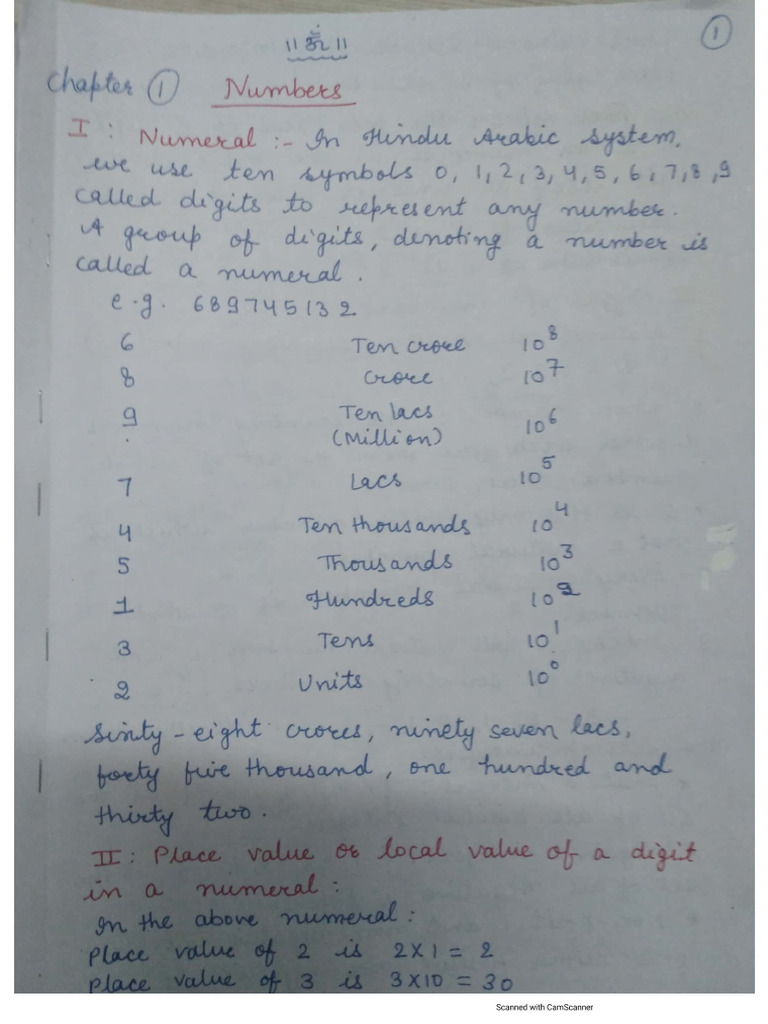 ॥ ૐ ॥
1
Chapter 1 Numbers
I : Numeral :- In Hindu Arabic system,
we use ten symbols 0, 1, 2, 3, 4, 5, 6, 7, 8, 9
called digits to represent any number.
A group of digits, denoting a number is
called a numeral.
e.g. 689745132
6 Ten crore 10⁸
8 crore 10⁷
9 Ten lacs 10⁶
(Million)
7 Lacs 10⁵
4 Ten thousands 10⁴
5 Thousands 10³
1 Hundreds 10²
3 Tens 10¹
2 Units 10⁰
Sixty - eight crores, ninety seven lacs,
forty five thousand, one hundred and
thirty two.
II : Place value or local value of a digit
in a numeral :
In the above numeral :
Place value of 2 is 2 X 1 = 2
Place value of 3 is 3 X 10 = 30
Scanned with CamScanner